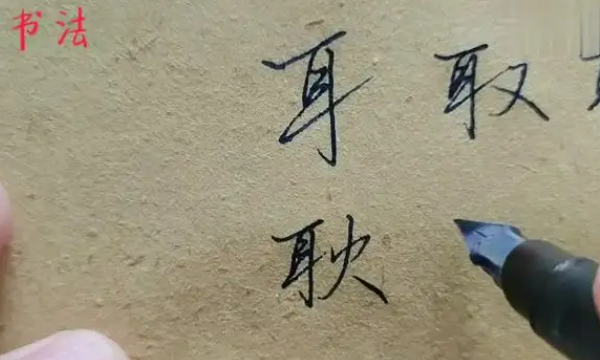 书法
耳 取
耿